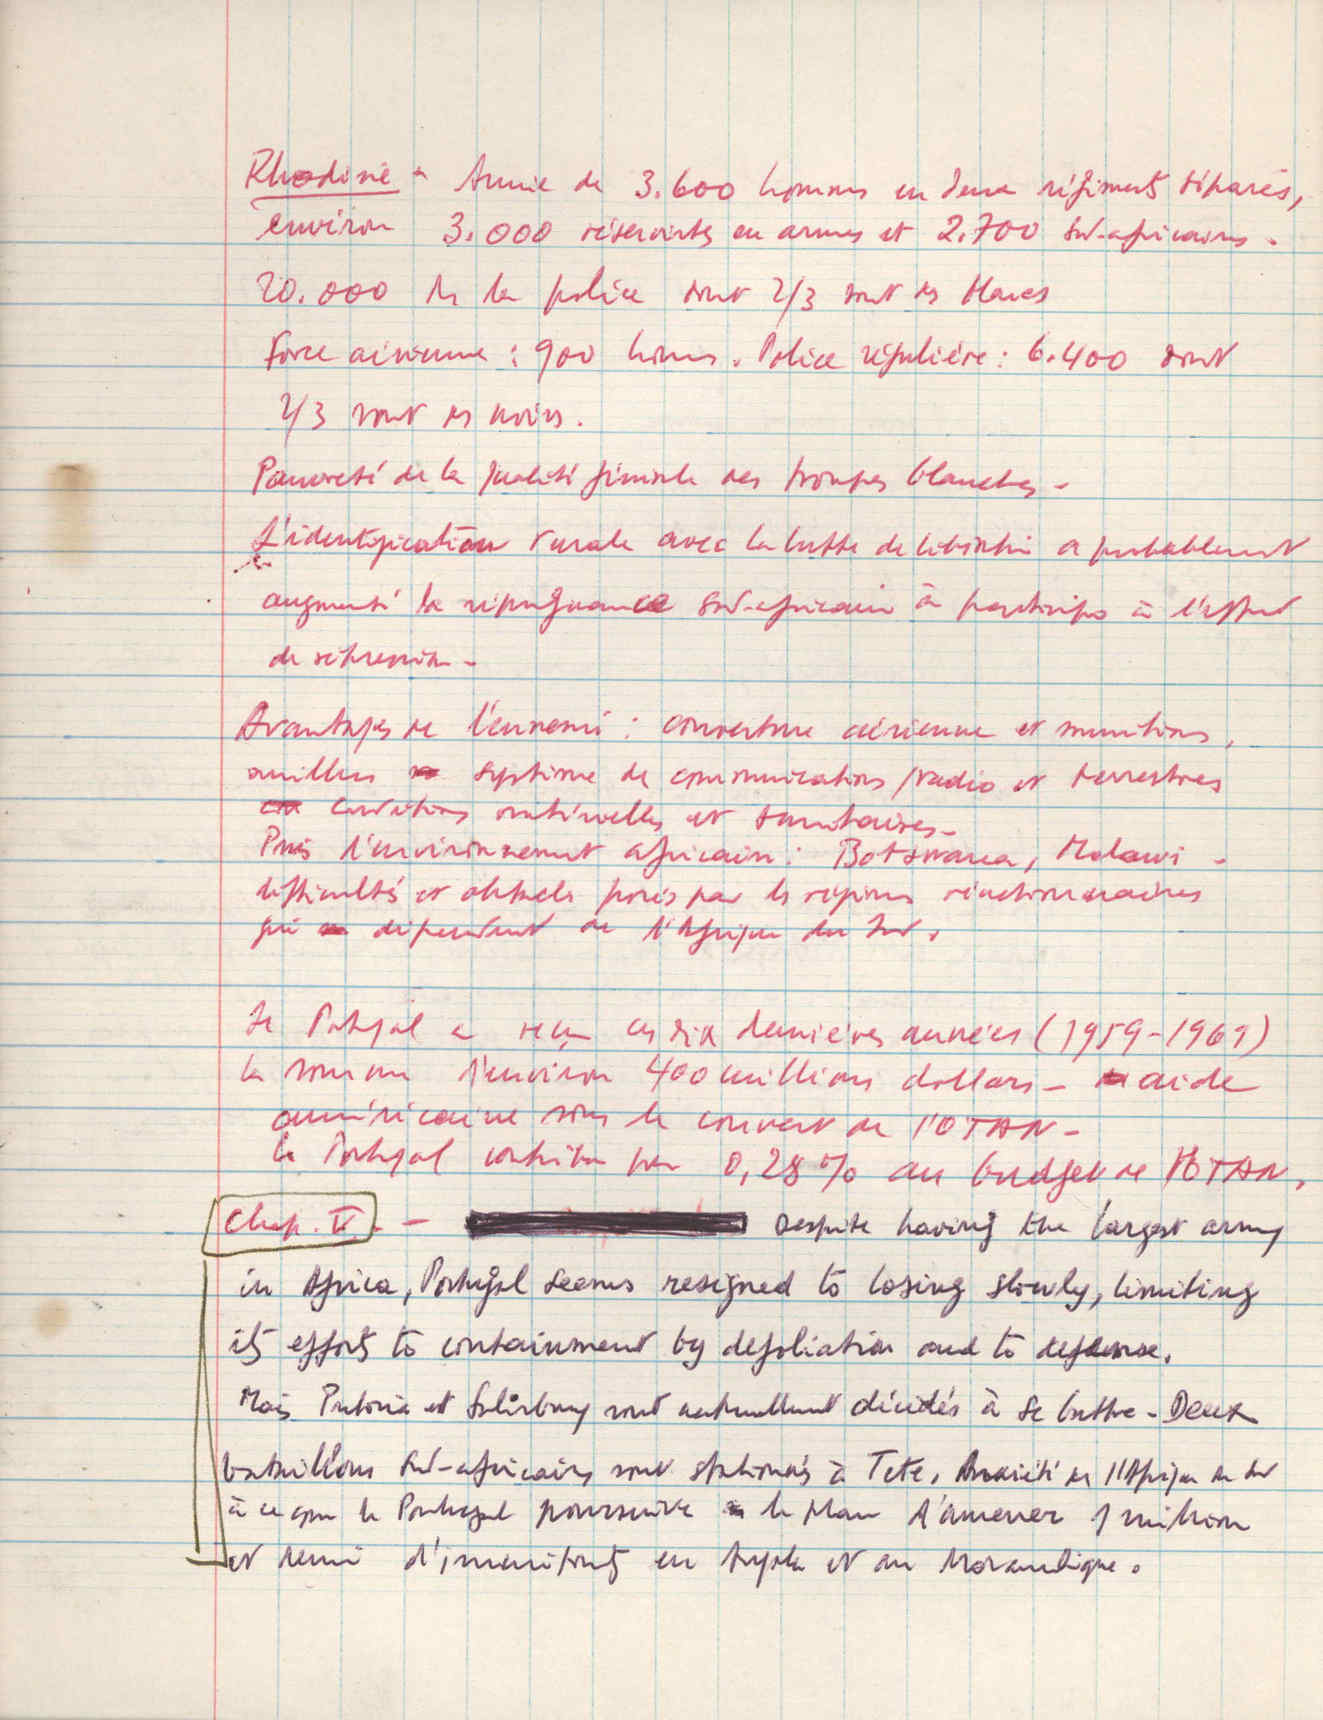 Rhodésie - Armée de 3.600 hommes en deux régiments séparés,
environ 3.000 réservistes en armes et 2.700 sud-africains.
20.000 de la police dont 2/3 sont des blancs
Force aérienne : 900 homes. Police régulière : 6.400 dont
2/3 sont des noirs.
Pauvreté de la qualité générale des troupes blanches -
L'identification rurale avec la lutte de libération a probablement
augmenté la répugnance sud-africain à participer à l'effort
de répression -
Avantages de l'ennemi : couverture aérienne et munitions,
meilleur système de communications radio et terrestres
conditions matérielles et sanitaires -
Puis l'environnement africain : Botswana, Malawi -
difficultés et obstacles posés par les régimes réactionnaires
qui dépendent de l'Afrique du Sud.
Le Portugal a reçu ces dix dernières années (1959-1969)
la somme d'environ 400 millions dollars - aide
américaine sous le couvert de l'OTAN -
Le Portugal contribue pour 0,28% au budget de l'OTAN.
Chap. V. - Despite having the largest army
in Africa, Portugal seems resigned to losing slowly, limiting
its efforts to containment by defoliation and to defense.
Mais Pretoria et Salisbury sont actuellement décidés à se battre - Deux
bataillons sud-africains sont stationnés à Tete. Anxiété de l'Afrique du Sud
à ce que le Portugal poursuive le plan d'amener 1 million
et demi d'immigrants en Angola et au Mozambique.